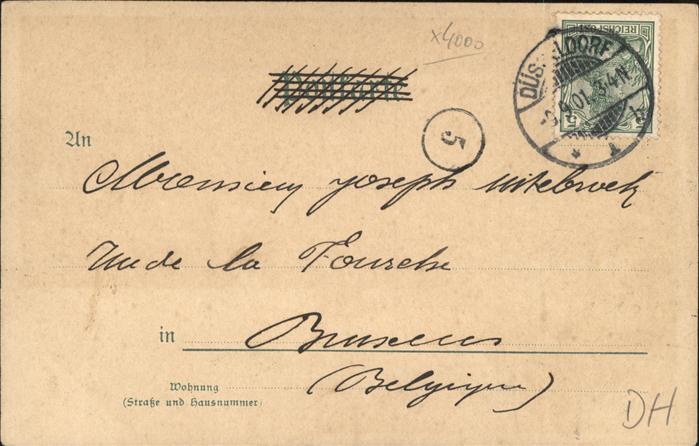 x4000
REICHSPOST
5 5
DÜSSELDORF
9.01. 3-4N.
1 * 1 h
Postkarte
5
An
Monsieur Joseph
Rue de la Fourche
in Bruxelles
(Belgique)
Wohnung
(Straße und Hausnummer)
DH